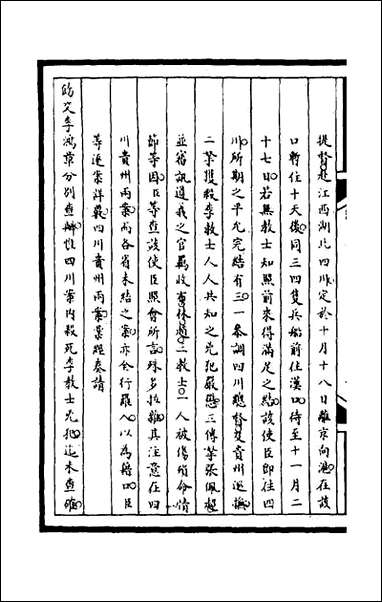 提督赴江西湖北四川定於十月十八日離京向滬在該
口暫住十天偕同三四隻兵船前往漢口待至十一月二
十七日若無教士知照前來得滿足之結該使臣即往四
川所期之平允完結有三一參調四川總督及貴州巡撫
二業獲殺李教士人人共知之兇犯嚴懲三傳案張佩超
並審訊通我之官羈收二教士一人被傷殞命情
節等因臣等查該使臣照會所言殊多拉雜其注意在四
川貴州兩案而各省未結之案亦令行羅入以為藉口臣
等逐案詳覈四川貴州兩案業經奏請
飭交李鴻章分別查辦惟四川案內殺死李教士兇犯迄未查確